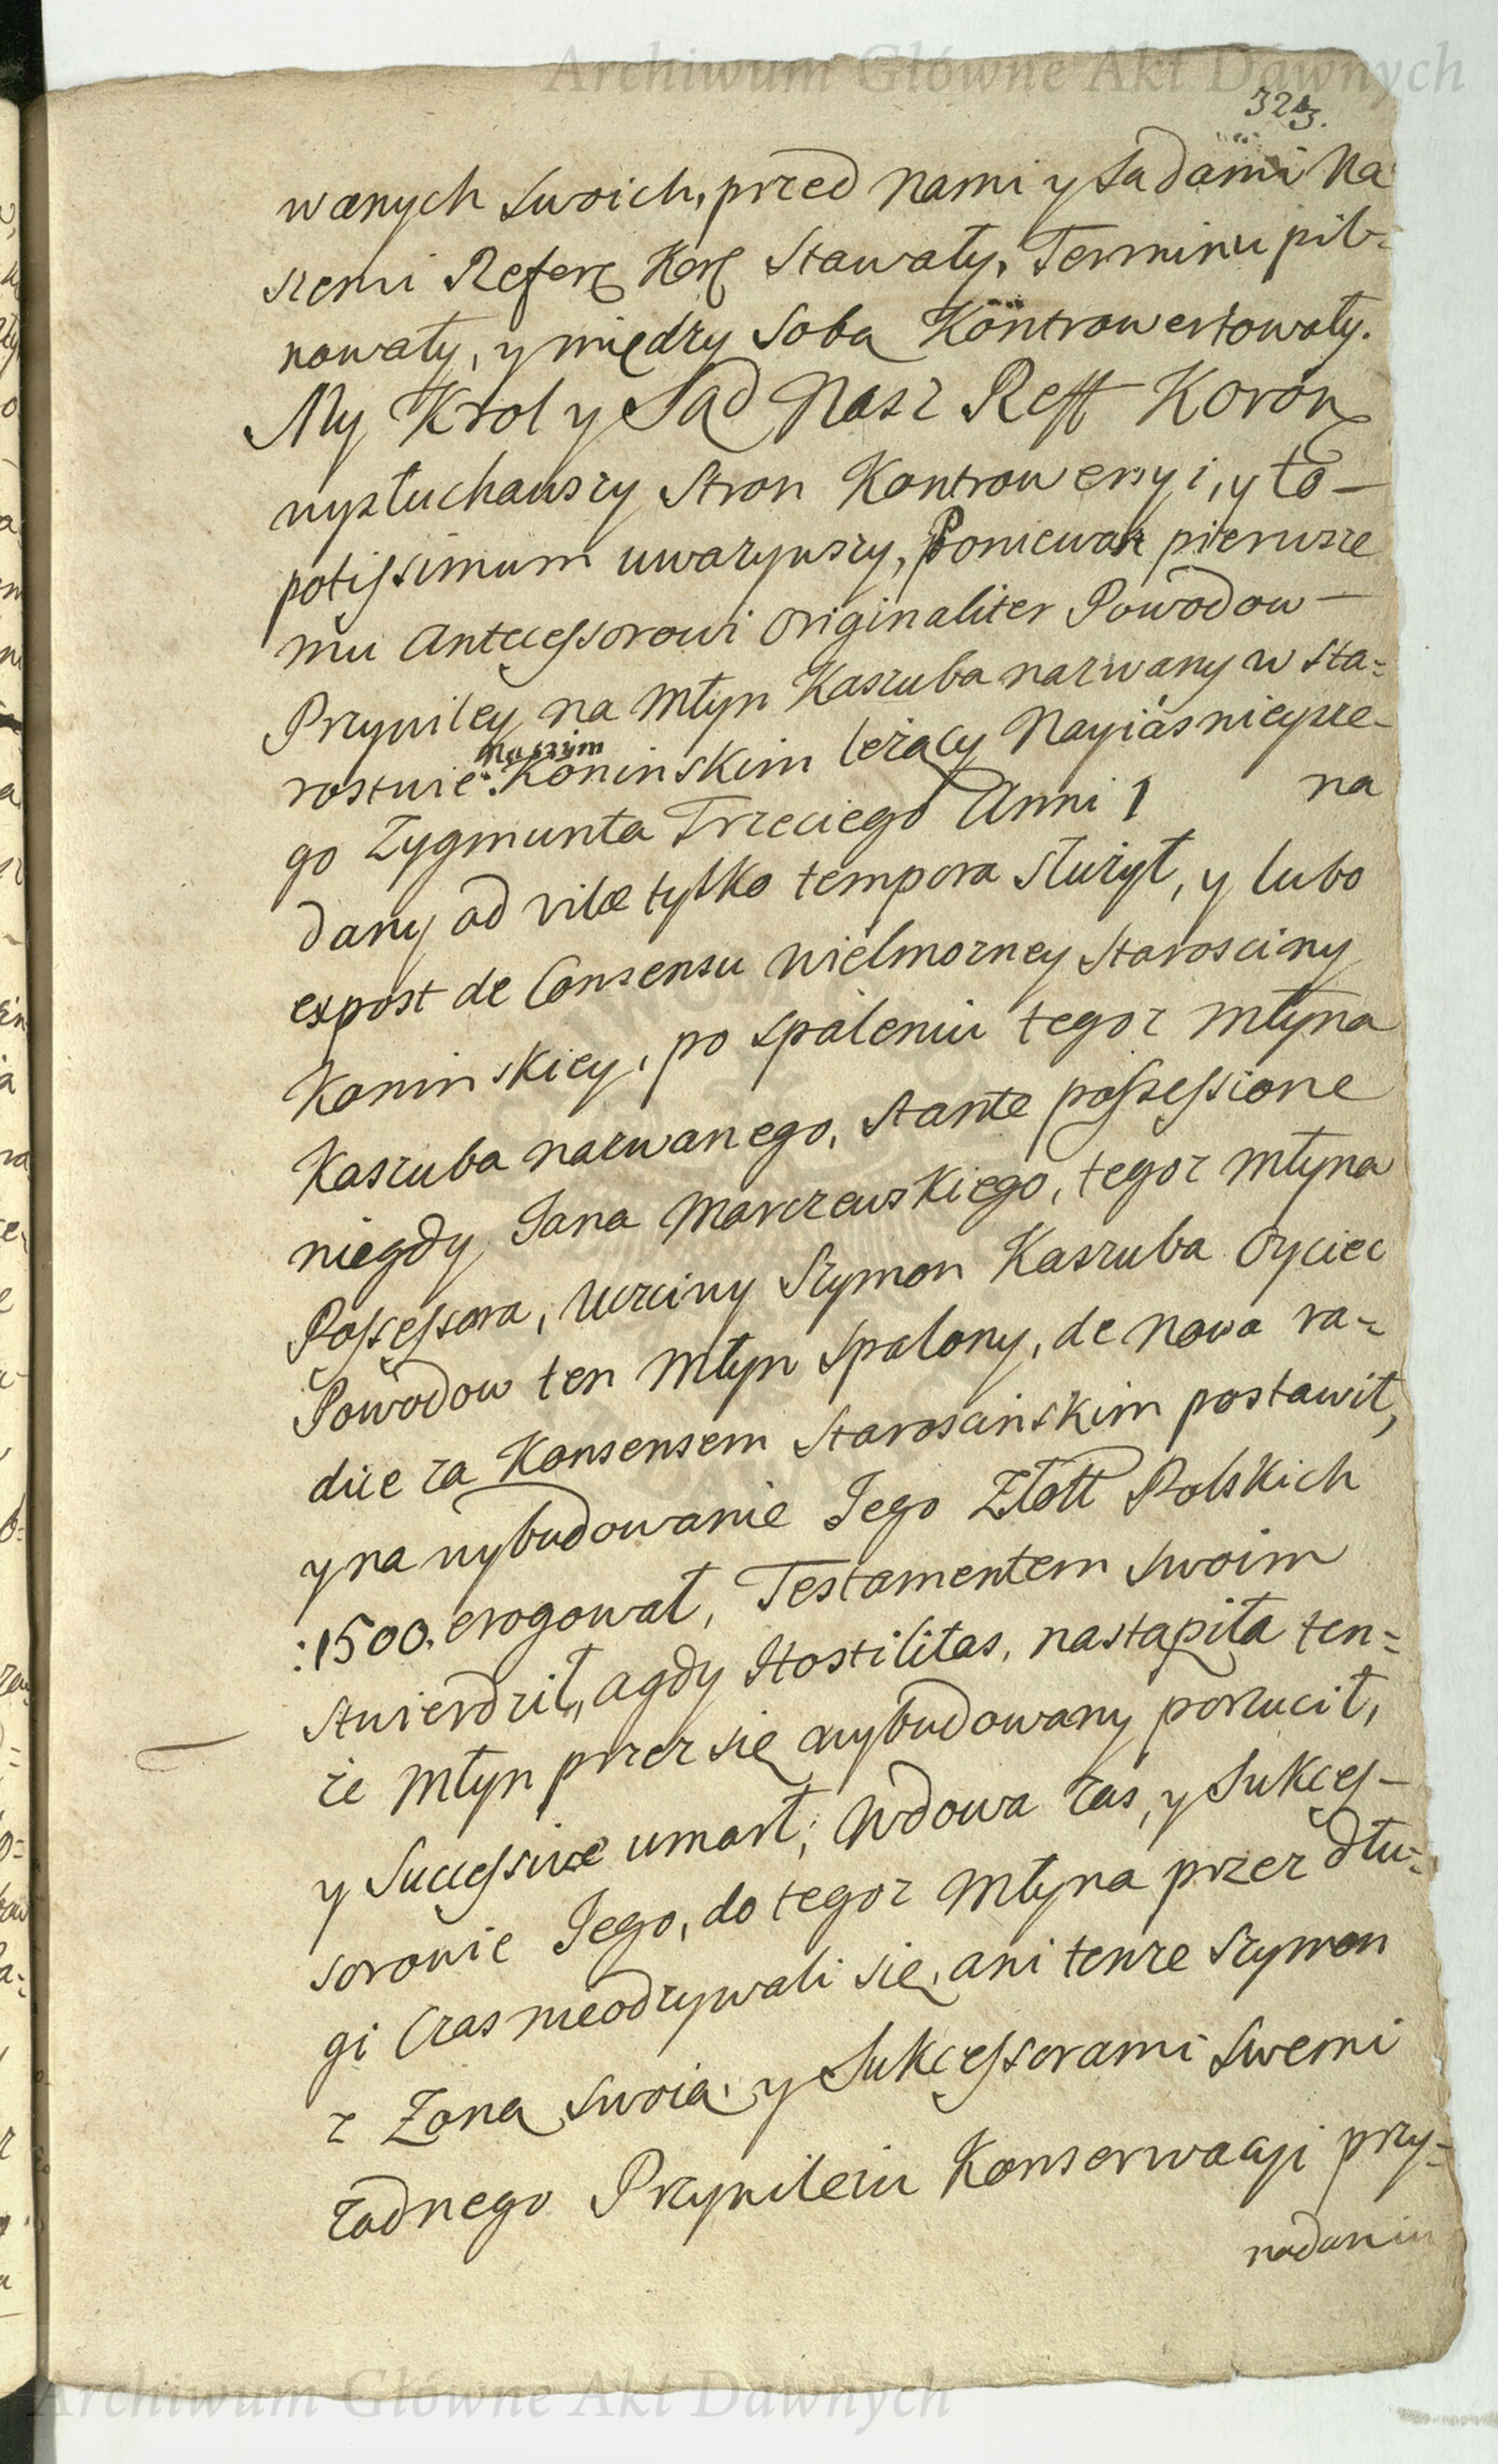 Archiwum Główne Akt Dawnych
323.
wanych swoich, przed nami y Sadami Na
szemi Refere Kor Stawały, Terminu pil-
nowały, y między Sobą Kontrowertowały.
My Krol y Sąd Nasz Reff Koron
wysłuchawszy Stron Kontrowersyi, y to –
potissimum uwazywszy, Poniewaz pierwsze
mu Antecessorowi Originaliter Powodow –
Przywiley na Młyn Kaszuba nazwany w Sta-
naszym
rostwie Koninskim leżący Nayiásnieysze-
go Zygmunta Trzeciego Anni 1 na
dany ad vitæ tylko tempora służył, y lubo
expost de Consensu Wielmozney Starosciny
Koninskiey, po spaleniu tegoz Młyna
Kaszuba nazwanego, stante possessione
niegdy Jana Marczewskiego, tegoz Młyna
Possessora, Uczciwy Szymon Kaszuba Oyciec
Powodow ten Młyn spalony, de nowa ra-
dice za Konsensem Staroscińskim postawił,
y na wybudowanie Jego Złott Polskich
:1500. erogował, Testamentem swoim
stwierdził, a gdy Hostilitas, nastąpiła ten-
że Młyn przez się wybudowany porzucił,
y Successive umarł; Wdowa zas, y Sukces-
sorowie Jego, do tegoz Młyna przez dłu-
gi Czas nieodzywali się, ani tenze Szymon
z Żoną swoią, y Sukcessorami swemi
żadnego Przywileiu Konserwacyi przy-
nadaniu
Archiwum Główne Akt Dawnych